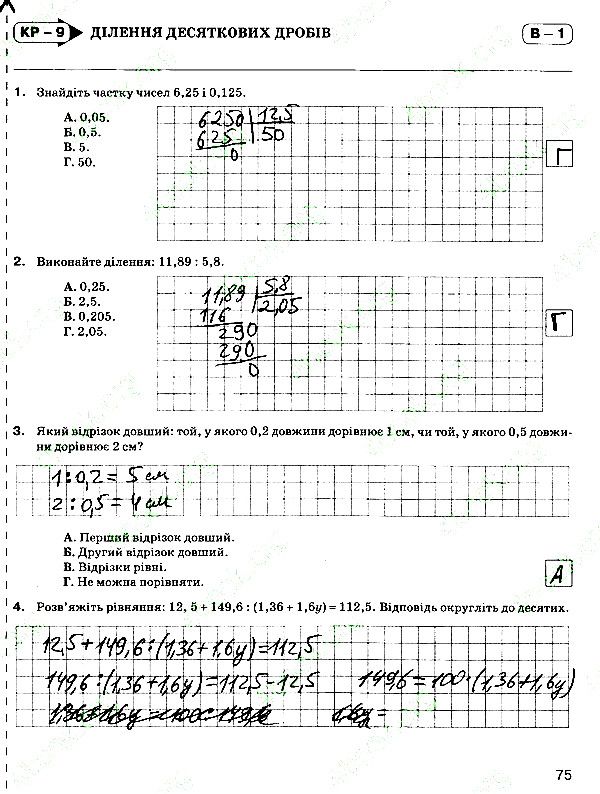 КР – 9
ДІЛЕННЯ ДЕСЯТКОВИХ ДРОБІВ
В – 1
1. Знайдіть частку чисел 6,25 і 0,125.
А. 0,05.
Б. 0,5.
В. 5.
Г. 50.
6250 12,5
625 50
0
Г
2. Виконайте ділення: 11,89 : 5,8.
А. 0,25.
Б. 2,5.
В. 0,205.
Г. 2,05.
11,89 5,8
116 2,05
290
290
0
Г
3. Який відрізок довший: той, у якого 0,2 довжини дорівнює 1 см, чи той, у якого 0,5 довжи-
ни дорівнює 2 см?
1 : 0,2 = 5 см
2 : 0,5 = 4 см
А. Перший відрізок довший.
Б. Другий відрізок довший.
В. Відрізки рівні.
Г. Не можна порівняти.
А
4. Розв’яжіть рівняння: 12, 5 + 149,6 : (1,36 + 1,6y) = 112,5. Відповідь округліть до десятих.
12,5 + 149,6 : (1,36 + 1,6y) = 112,5
149,6 : (1,36 + 1,6y) = 112,5 - 12,5
149,6 = 100 · (1,36 + 1,6y)
75